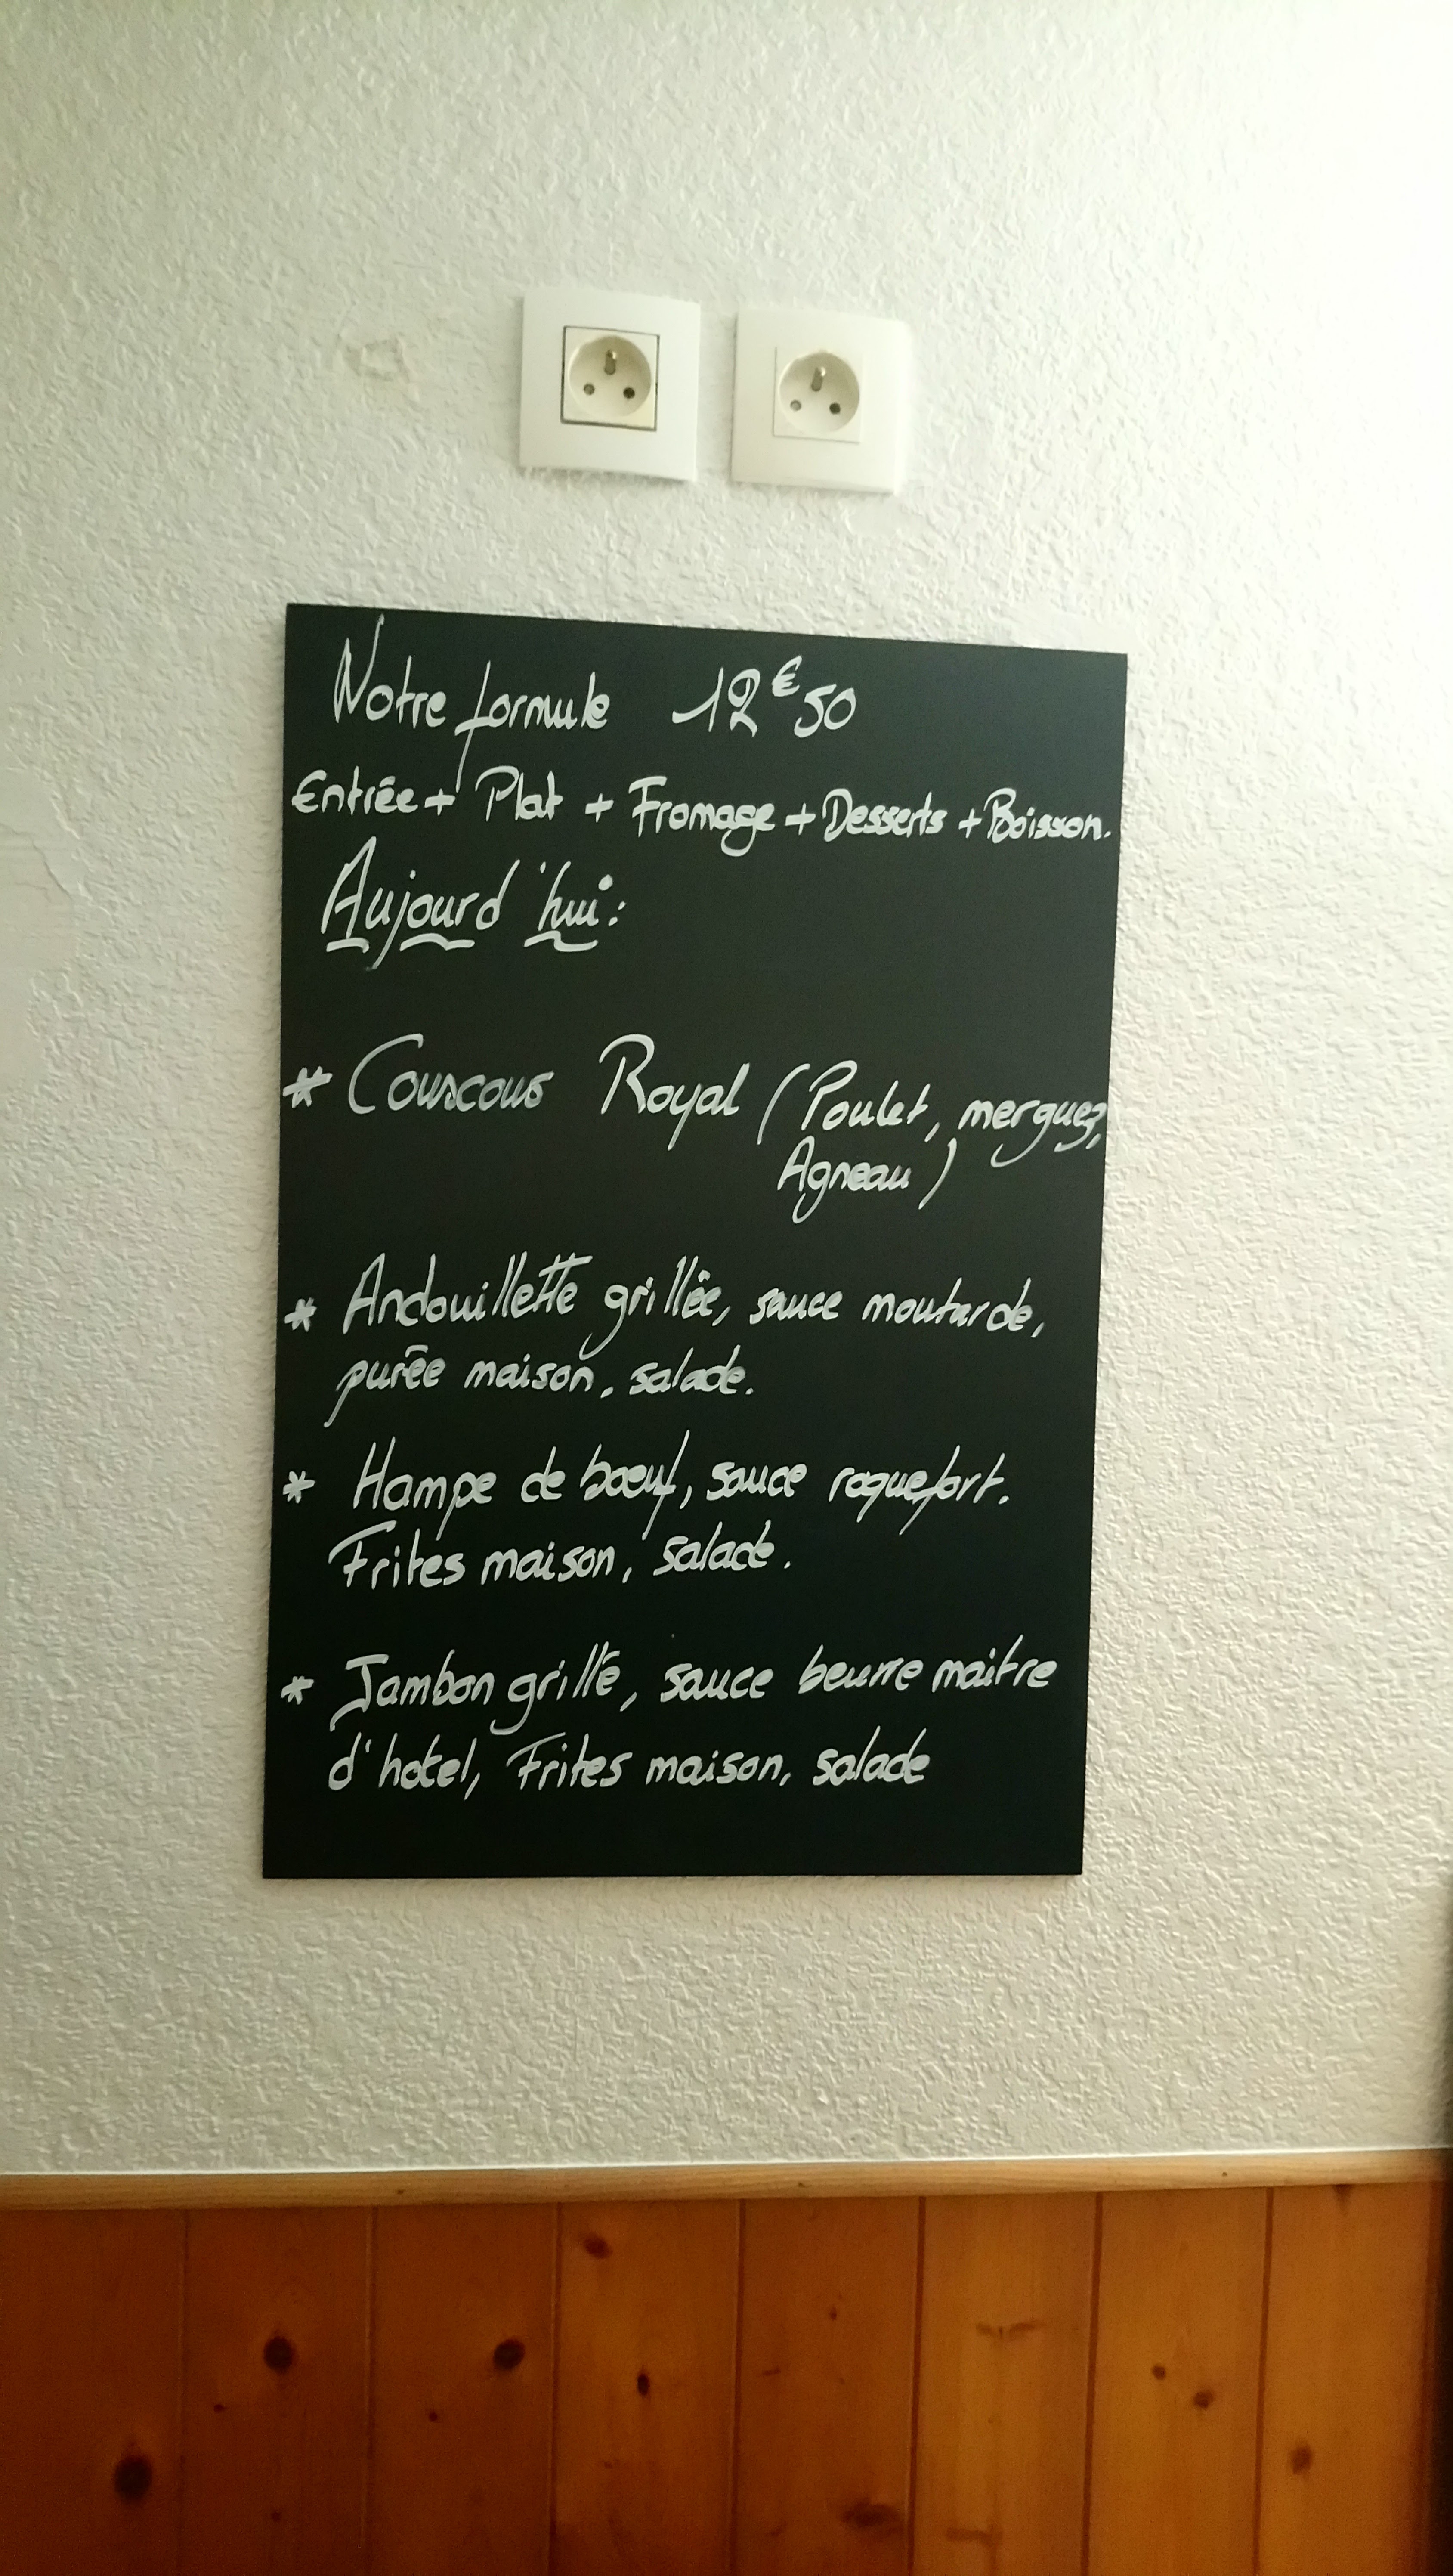 Notre formule 12€50
Entrée + Plat + Fromage + Desserts + Boisson.
Aujourd'hui :
* Couscous Royal (Poulet, merguez,
Agneau)
* Andouillette grillée, sauce moutarde,
purée maison, salade.
* Hampe de bœuf, sauce roquefort.
Frites maison, salade.
* Jambon grillé, sauce beurre maitre
d'hotel, Frites maison, salade